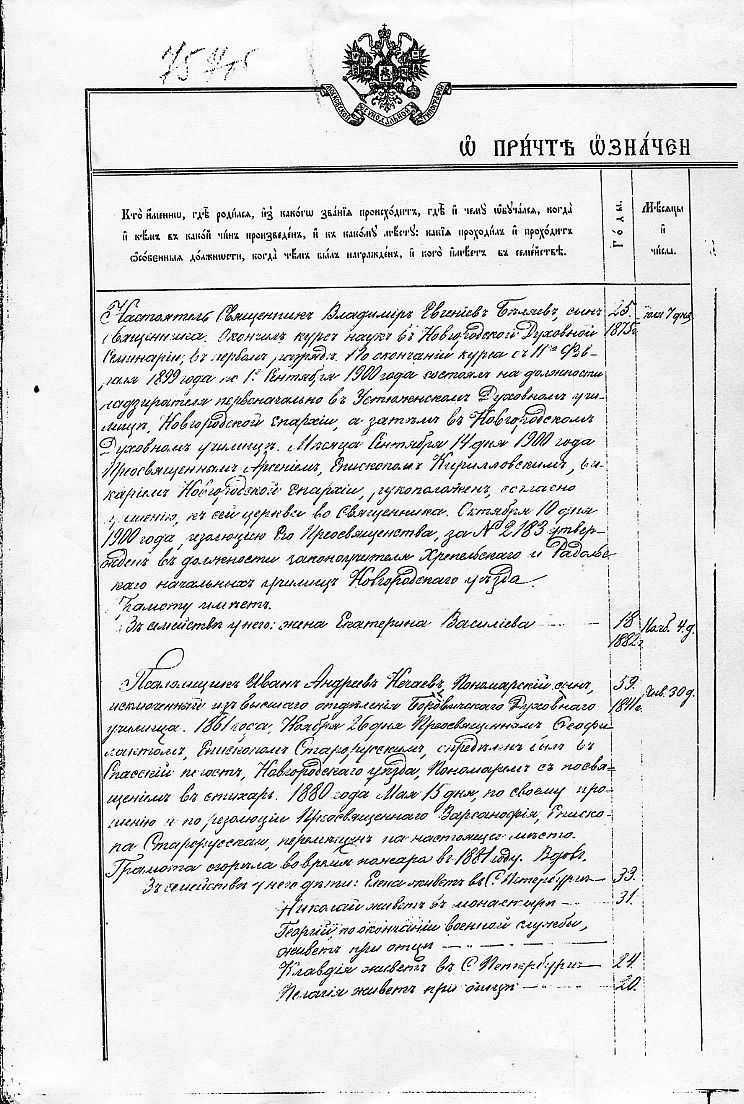 МОСКОВСКОЙ СУНОДАЛЬНОЙ ТИПОГРАФІИ
Ѡ ПРИ́ЧТѢ Ѡ҆ЗНА́ЧЕН
Кто̀ и҆́менно, гдѣ̀ роди́лсѧ, и҆з̾ како́гѡ зва́нїѧ происхо́дитъ, гдѣ̀ и҆ чемꙋ̀ ѡ҆бꙋча́лсѧ, когда̀
и҆ кѣ́мъ въ како́й чи́нъ произведе́нъ, и҆ къ како́мꙋ мѣ́стꙋ: какі̑ѧ проходи́лъ и҆ прохо́дитъ
ѻ҆со́бенныѧ до́лжности, когда̀ чѣ́мъ бы́лъ награжде́нъ, и҆ кого̀ и҆мѣ́етъ въ семе́йствѣ.
Го́ды.
Мѣ́сѧцы
и҆
чи́сла.
Настоятель Священникъ Владимiръ Евгенiевъ Бѣляевъ, сынъ 25. 7 дня
священника. Окончилъ курсъ наукъ въ Новгородской Духовной 1875 г.
Семинарiи, въ первомъ разрядѣ. По окончанiи курса съ 11го Фев-
раля 1899 года по 1е Сентября 1900 года состоялъ на должности
надзирателя первоначально въ Устюженскомъ Духовномъ учи-
лищѣ, Новгородской епархiи, а затѣмъ въ Новгородскомъ
Духовномъ училищѣ. Мѣсяца Сентября 14 дня 1900 года
Преосвященнымъ Арсенiемъ, Епископомъ Кирилловскимъ, ви-
карiемъ Новгородской епархiи, рукоположенъ, согласно
прошенiю, къ сей церкви во священника. Октября 10 дня
1900 года, резолюцiею Его Преосвященства, за № 2183 утвер-
жденъ въ должности законоучителя Хрепельскаго и Радоль-
скаго начальныхъ училищъ Новгородскаго уѣзда.
Грамоту имѣетъ.
Въ семействѣ у него: жена Екатерина Василiева 18 Нояб. 4 д.
1882 г.
Псаломщикъ Иванъ Андреевъ Нечаевъ, Пономарскiй сынъ, 59. Янв. 30 д.
исключенный изъ высшаго отдѣленiя Боровичскаго Духовнаго 1841 г.
училища. 1861 года, Ноября 26 дня Преосвященнымъ Ѳеофи-
лактомъ, Епископомъ Старорусскимъ, опредѣленъ былъ въ
Спасскiй погостъ, Новгородскаго уѣзда, Пономаремъ съ посвя-
щенiемъ въ стихарь. 1880 года Мая 15 дня, по своему про-
шенiю и по резолюцiи Преосвященнаго Варсонофiя, Еписко-
па Старорусскаго, перемѣщенъ на настоящее мѣсто.
Грамота сгорѣла во время пожара въ 1881 году. Вдовъ.
Въ семействѣ у него дѣти: Елена живетъ въ С. Петербургѣ 33.
Николай живетъ въ монастырѣ 31.
Георгiй, по окончанiи военной службы,
живетъ при отцѣ
Клавдiя живетъ въ С. Петербургѣ 24.
Пелагiя живетъ при отцѣ 20.